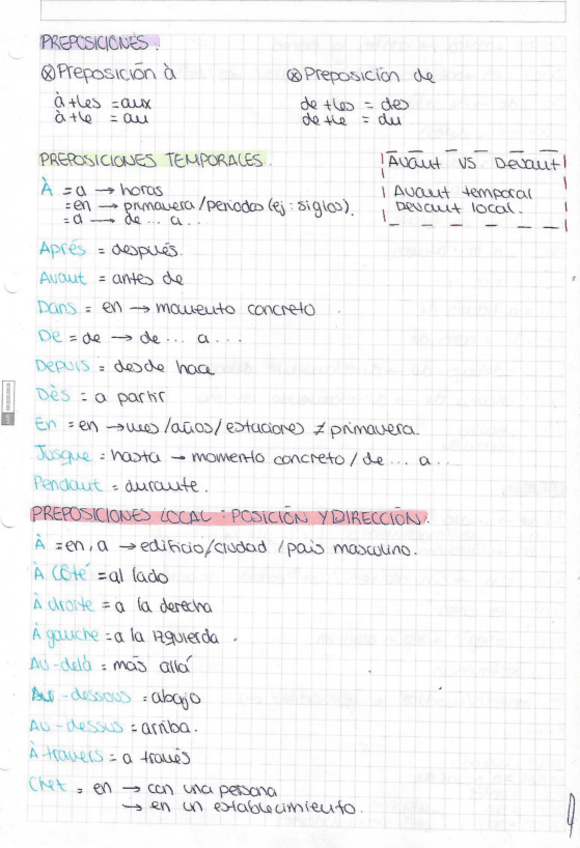 PREPOSICIONES.
⊗ Preposición à
à + les = aux
à + le = au
⊗ Preposición de
de + les = des
de + le = du
PREPOSICIONES TEMPORALES.
Avant VS Devant
Avant temporal
Devant local.
À = a → horas
= en → primavera / periodos (ej: siglos).
= a → de ... a ...
Aprés = después.
Avant = antes de
Dans = en → momento concreto
De = de → de ... a ...
Depuis = desde hace
Dès = a partir
En = en → mes / años / estaciones ≠ primavera.
Jusque = hasta → momento concreto / de ... a ...
Pendant = durante.
PREPOSICIONES LOCAL: POSICIÓN Y DIRECCIÓN.
À = en, a → edificio/ciudad / país masculino.
À côté = al lado
À droite = a la derecha
À gauche = a la izquierda.
Au-delà = más allá
Au-dessous = abajo
Au-dessus = arriba.
À travers = a través
Chez = en → con una persona
→ en un establecimiento.